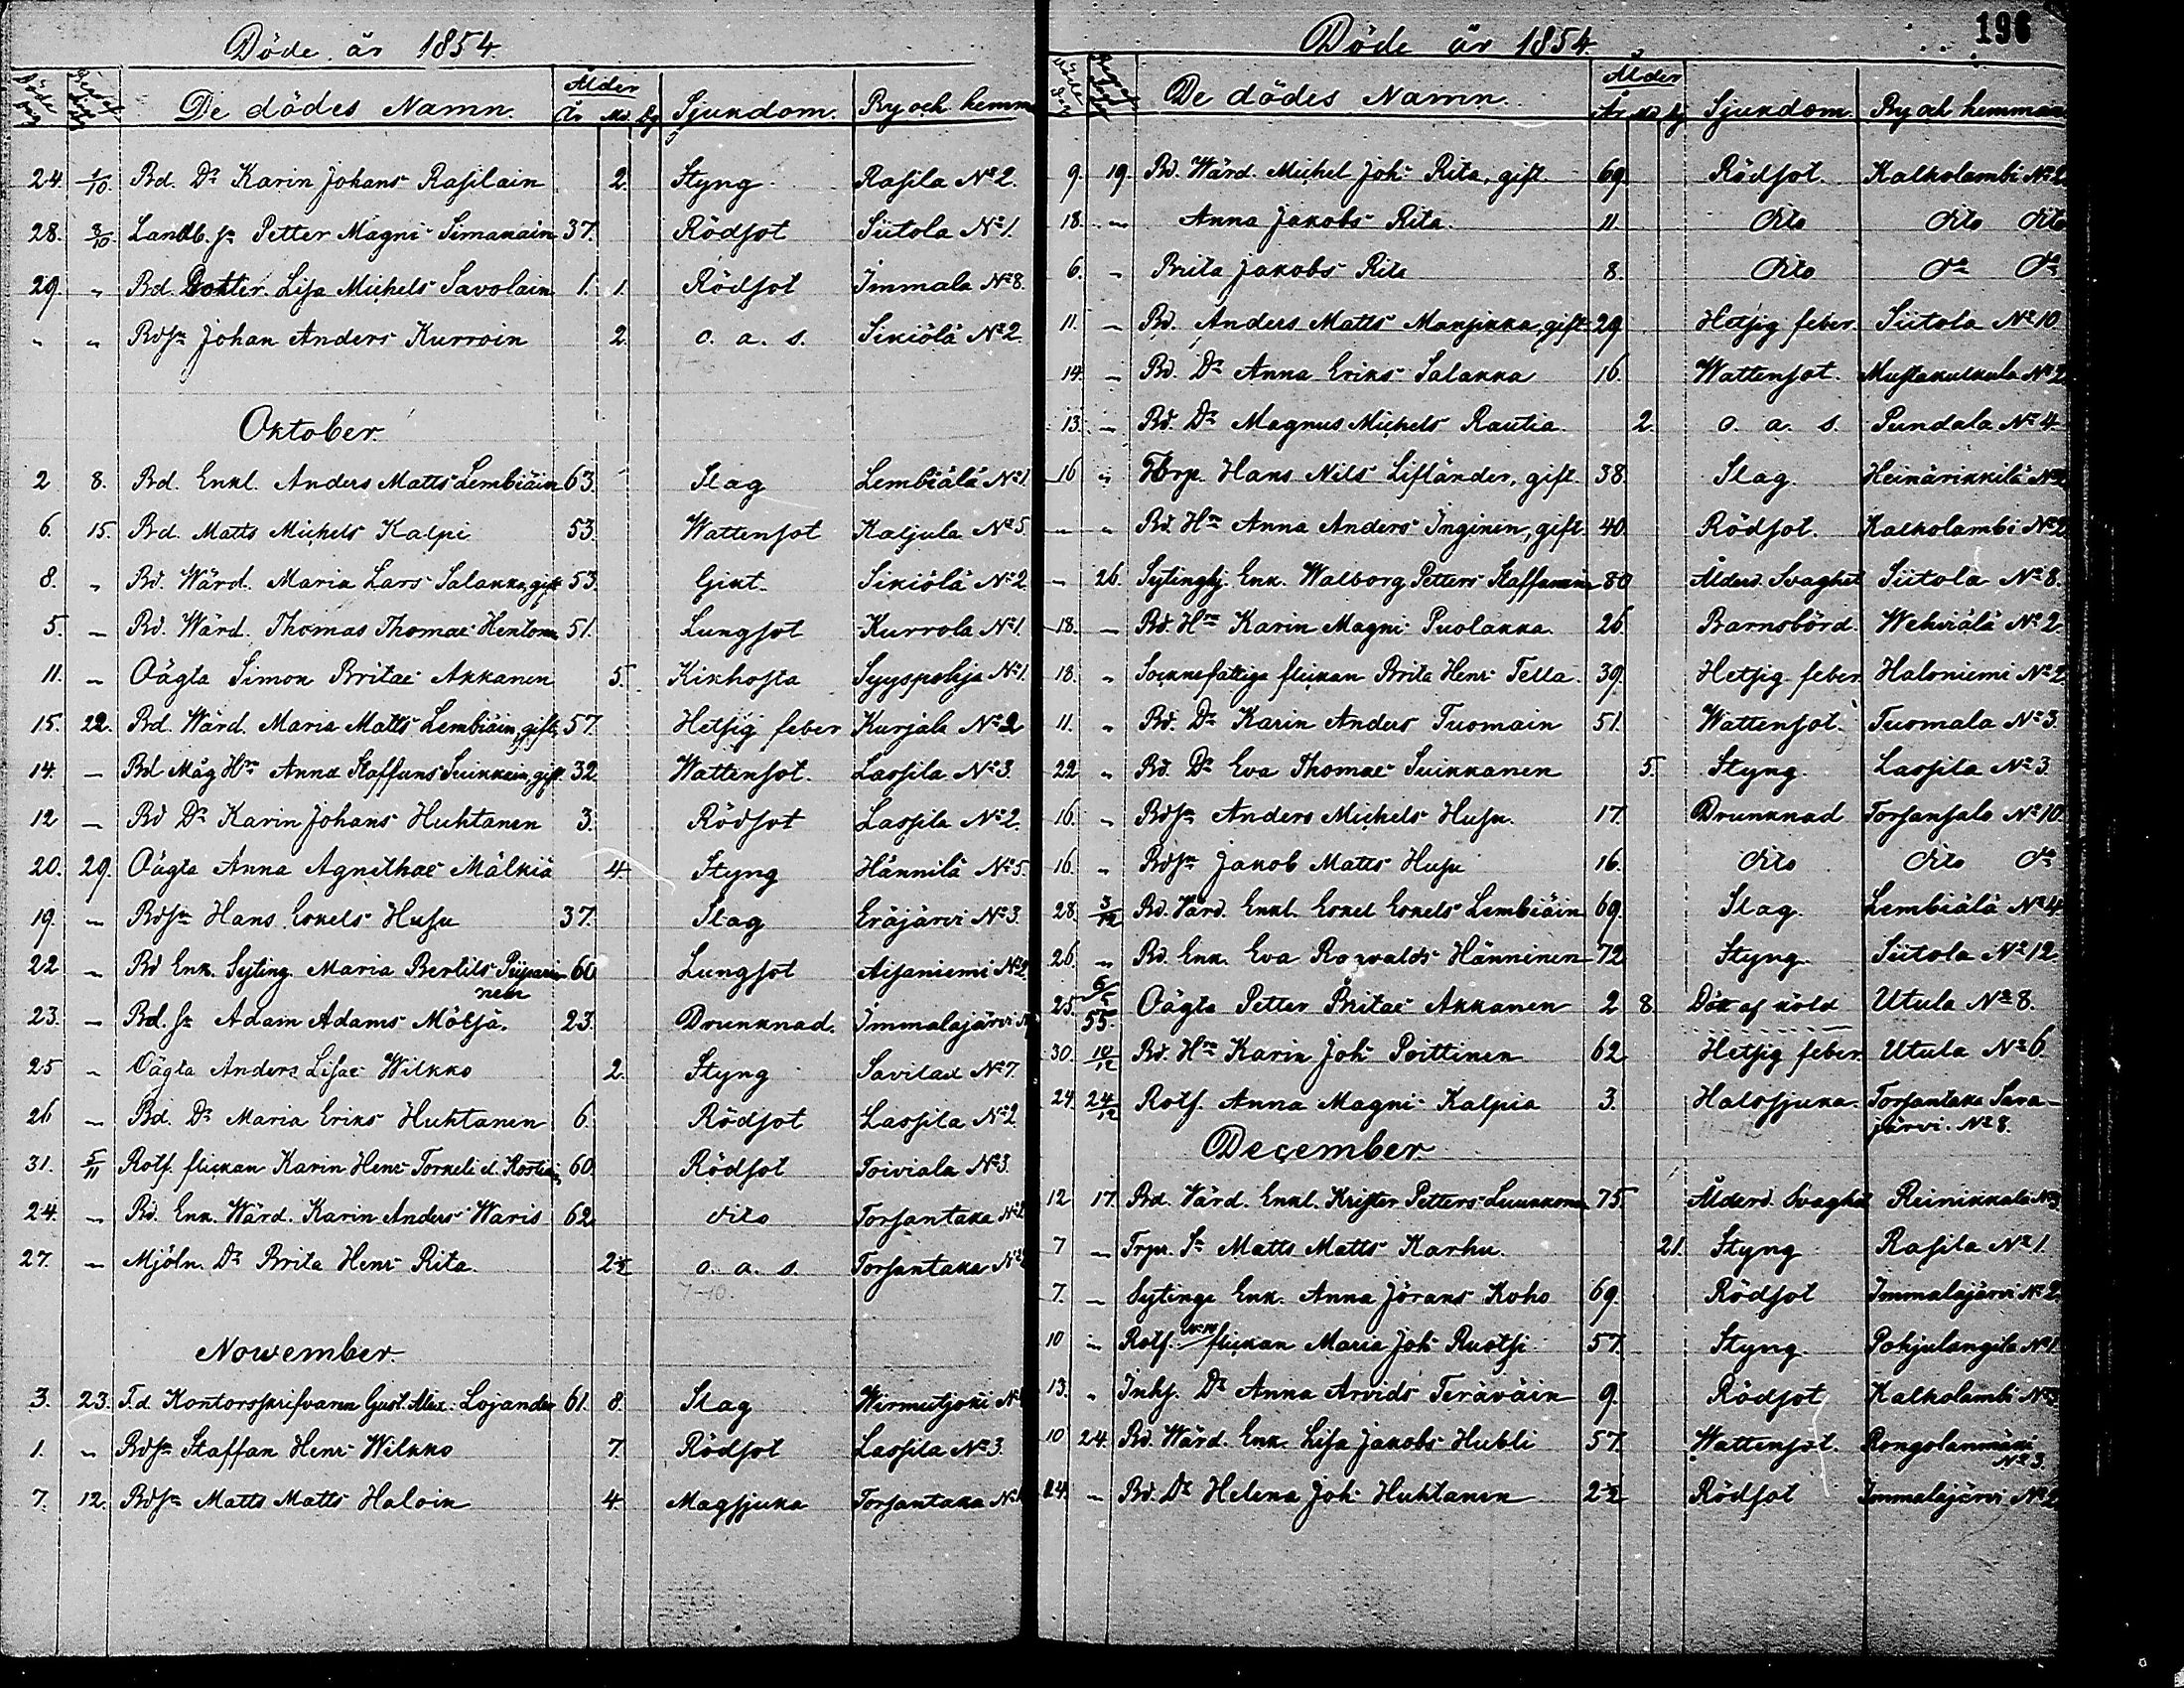 Döde år 1854.
Döde dag Begraf. dag De dödes Namn. Ålder År Md. Dg Sjukdom. By och hemm
24. 1/10. Bd. Dr Karin Johans Rasilain 2. Styng Rasila No 2.
28. 8/10. Landb. sn Petter Magni Simanain 37. Rödsot Siitola No 1.
29. " Bd. Dotter Lisa Michels Savolain 1. 1. Rödsot Immala No 8.
" " Bdsn Johan Anders Kurroin 2. o. a. s. Sikiölä No 2.
Oktober.
2 8. Bd. Enkl. Anders Matts Lembiäin 63. Slag Lembiälä No 1.
6. 15. Bd. Matts Michels Kalpi 53. Wattensot Kaljula No 5.
8. " Bd. Wärd. Maria Lars Salakka, gift 53. Gikt Sikiölä No 2.
5. — Bd. Wärd. Thomas Thomae Hentonen 51. Lungsot Kurrola No 1.
11. — Oägta Simon Britae Akkanen 5. Kikhosta Syyspohja No 1.
15. 22. Bd. Wärd. Maria Matts Lembiäin, gift, 57. Hetsig feber Kurjala No 2
14. — Bd Måg Hru Anna Staffans Suikkain, gift 32 Wattensot. Lassila No 3.
12 — Bd Dr Karin Johans Huhtanen 3. Rödsot Lassila No 2.
20. 29. Oägta Anna Agnethae Mälkiä 4 Styng Hännilä No 5.
19. — Bdsn Hans Eskels Husu 37. Slag Eräjärvi No 3.
22 — Bd Enk. Syting. Maria Bertils Piiparinen 60 Lungsot Aisaniemi No 2
23. — Bd. sn Adam Adams Mölsä. 23. Drunknad. Immalajärvi
25 " Oägta Anders Lisae Wilkko 2. Styng Savilax No 7.
26 — Bd. Dr Maria Eriks Huhtanen 6. Rödsot Lassila No 2
31. 5/11 Rotf. flickan Karin Henr Torkeli el. Kostiain 60. Rödsot Toiviala No 3.
24. — Bd. Enk. Wärd. Karin Anders Waris 62 dito Torsantaka
27. — Mjöln. Dr Brita Henr Rita 2 1/2 o. a. s. Torsantaka
7-10.
November.
3. 23. F.d. Kontorsskrifvaren Gust. Alex. Lojander 61. 8. Slag Wirmutjoki
1. " Bdsn Staffan Henr Wilkko 7. Rödsot Lassila No 3.
7. 12. Bdsn Matts Matts Haloin 4 Magsjuka Torsantaka
Döde år 1854 196
De dödes Namn. Ålder År Md Dg Sjukdom By och hemman
9. 19. Bd. Wärd. Michel Joh Rita, gift. 69. Rödsot. Kalholambi No 2.
18. — Anna Jakobs Rita. 11. dito dito dito
6. " Brita Jakobs Rita 8. dito do do
11. — Bd. Anders Matts Mansikka, gift 29. Hetsig feber. Siitola No 10
14. — Bd. Dr Anna Eriks Salakka 16. Wattensot. Mustakulkula No 2.
13. — Bd. Dr Magnus Michels Rautia. 2. o. a. s. Pundala No 4
16 " Torp. Hans Nils Lifländer, gift. 38. Slag. Heinärikkilä No 2
" " Bd. Hru Anna Anders Inginen, gift. 40. Rödsot. Kalholambi No 2
— 26. Sytinghj. Enk. Walborg Petters Staffanain 80 Ålderd. Svaghet Siitola No 8.
18. — Bd. Hru Karin Magni Puolakka. 26. Barnsbörd. Wehviälä No 2.
18. " Socknefattiga flickan Brita Henr Tella. 39. Hetsig feber. Haloniemi No 2.
11. " Bd. Dr Karin Anders Tuomain 51. Wattensot. Tuomala No 3.
22 " Bd. Dr Eva Thomae Suikkanen 5. Styng. Lassila No 3.
16. " Bdsn Anders Michels Husu. 17. Drunknad Torsansalo No 10.
16. " Bdsn Jakob Matts Husu 16. dito dito do
28. 3/12 Bd. Värd. Enkl. Eskel Eskels Lembiäin 69. Slag. Lembiälä No 4.
26. " Bd. Enk. Eva Roxvalds Hänninen 72 Styng. Siitola No 12.
25. 6/5 55. Oägta Petter Britae Akkanen 2 8. Död af köld Utula No 8.
30. 10/12 Bd. Hru Karin Joh Poittinen 62 Hetsig feber. Utula No 6.
24. 24/12 Rotf. Anna Magni Kalpia 3. Halssjuka. Torsantaka Sarajärvi. No 8.
December
12 17. Bd. Värd. Enkl. Krister Petters Luukkonen 75. Ålderd. Svaghet Reinikkala No 3.
7 — Trpr. Sn Matts Matts Karhu. 21. Styng Rasila No 1.
7. — Sytings Enk. Anna Jörans Koho 69. Rödsot Immalajärvi No 2.
10 " Rotf. flickan Maria Joh Ruotsi 57. Styng. Pohjalangila No 1
13. " Inhs. Dr Anna Arvids Teräväin 9. Rödsot Kalholambi No 3.
10 24. Bd. Wärd. Enk. Lisa Jakobs Hubli 57. Wattensot. Rongolanmäki No 3.
24. — Bd. Dr Helena Joh Huhtanen 2 1/2 Rödsot Immalajärvi No 2